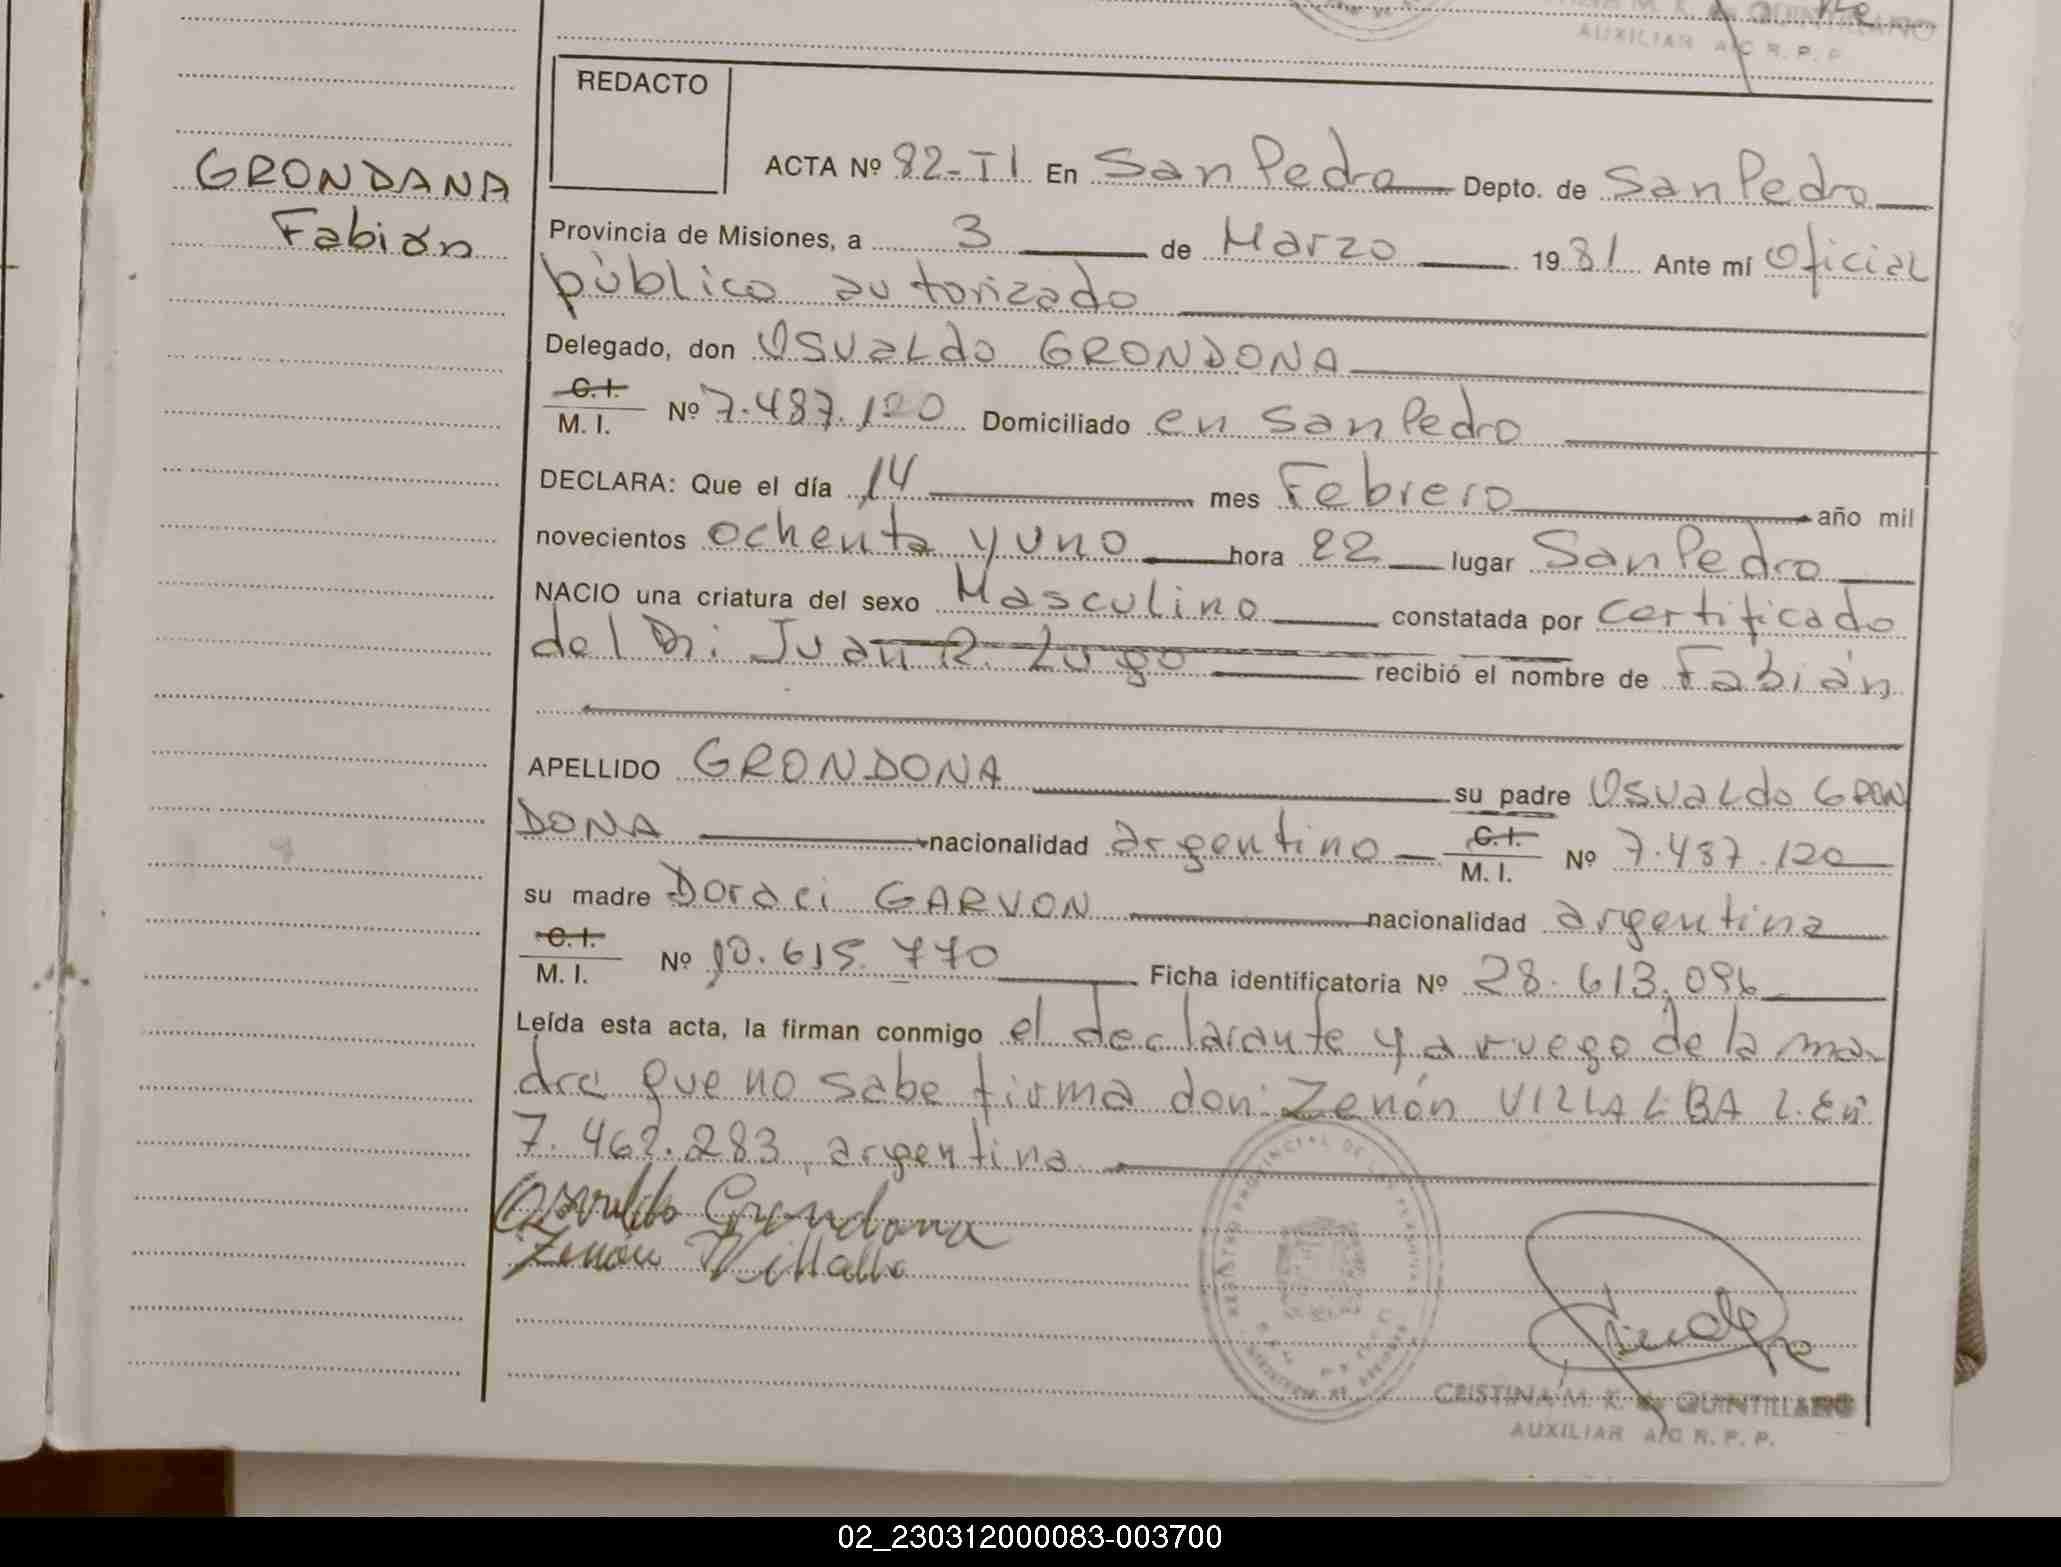 QUINTILLANO
AUXILIAR A/C R. P. P.
REDACTO
GRONDANA
Fabián
ACTA Nº 82-II En San Pedro Depto. de San Pedro
Provincia de Misiones, a 3 de Marzo 1981 Ante mí Oficial
público autorizado
Delegado, don OSVALDO GRONDONA
C. I.
M. I. Nº 7.487.120 Domiciliado en San Pedro
DECLARA: Que el día 14 mes Febrero año mil
novecientos ochenta y uno hora 22 lugar San Pedro
NACIO una criatura del sexo Masculino constatada por certificado
del Dr: Juan R. Lugo recibió el nombre de Fabián
APELLIDO GRONDONA su padre Osvaldo GRON
DONA nacionalidad argentino C. I.
M. I. Nº 7.487.120
su madre Doraci GARVON nacionalidad argentina
C. I.
M. I. Nº 10.615.770 Ficha identificatoria Nº 28.613.096
Leída esta acta, la firman conmigo el declarante y a ruego de la ma
dre que no sabe firma don: Zenón VILLALBA L.Enº
7.462.283, argentino
Osvaldo Grondona
Zenón Villalba
CRISTINA M. K. de QUINTILLANO
AUXILIAR A/C R. P. P.
02_230312000083-003700